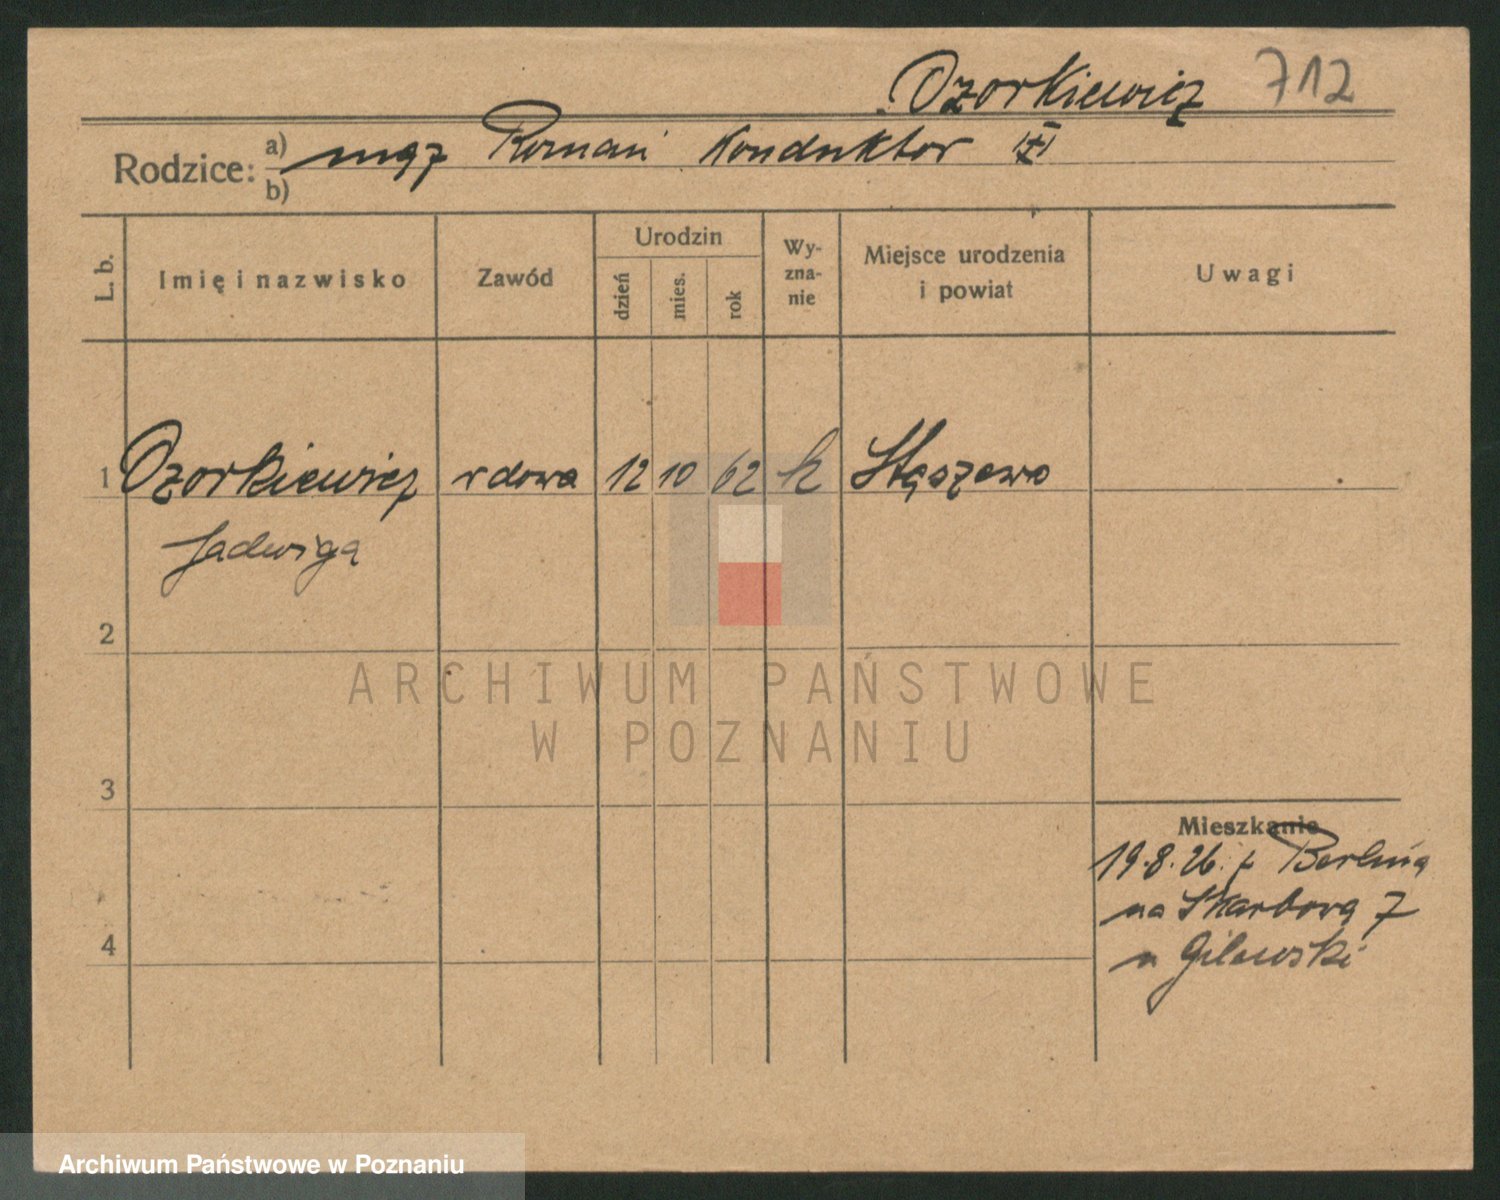 Ozorkiewicz 712
Rodzice: a) mąż Roman Konduktor
b)
L. b.
Imię i nazwisko
Zawód
Urodzin
dzień
mies.
rok
Wy-
zna-
nie
Miejsce urodzenia
i powiat
Uwagi
1 Ozorkiewicz wdowa 12 10 62 k
Jadwiga
2
3
4
Mieszkanie
19.8.26. z Berlina
na Skarbową 7
u Gilewski
ARCHIWUM PAŃSTWOWE
W POZNANIU
Archiwum Państwowe w Poznaniu